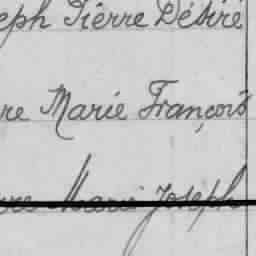 eph Pierre Désiré
re Marie François
re Marie Joseph